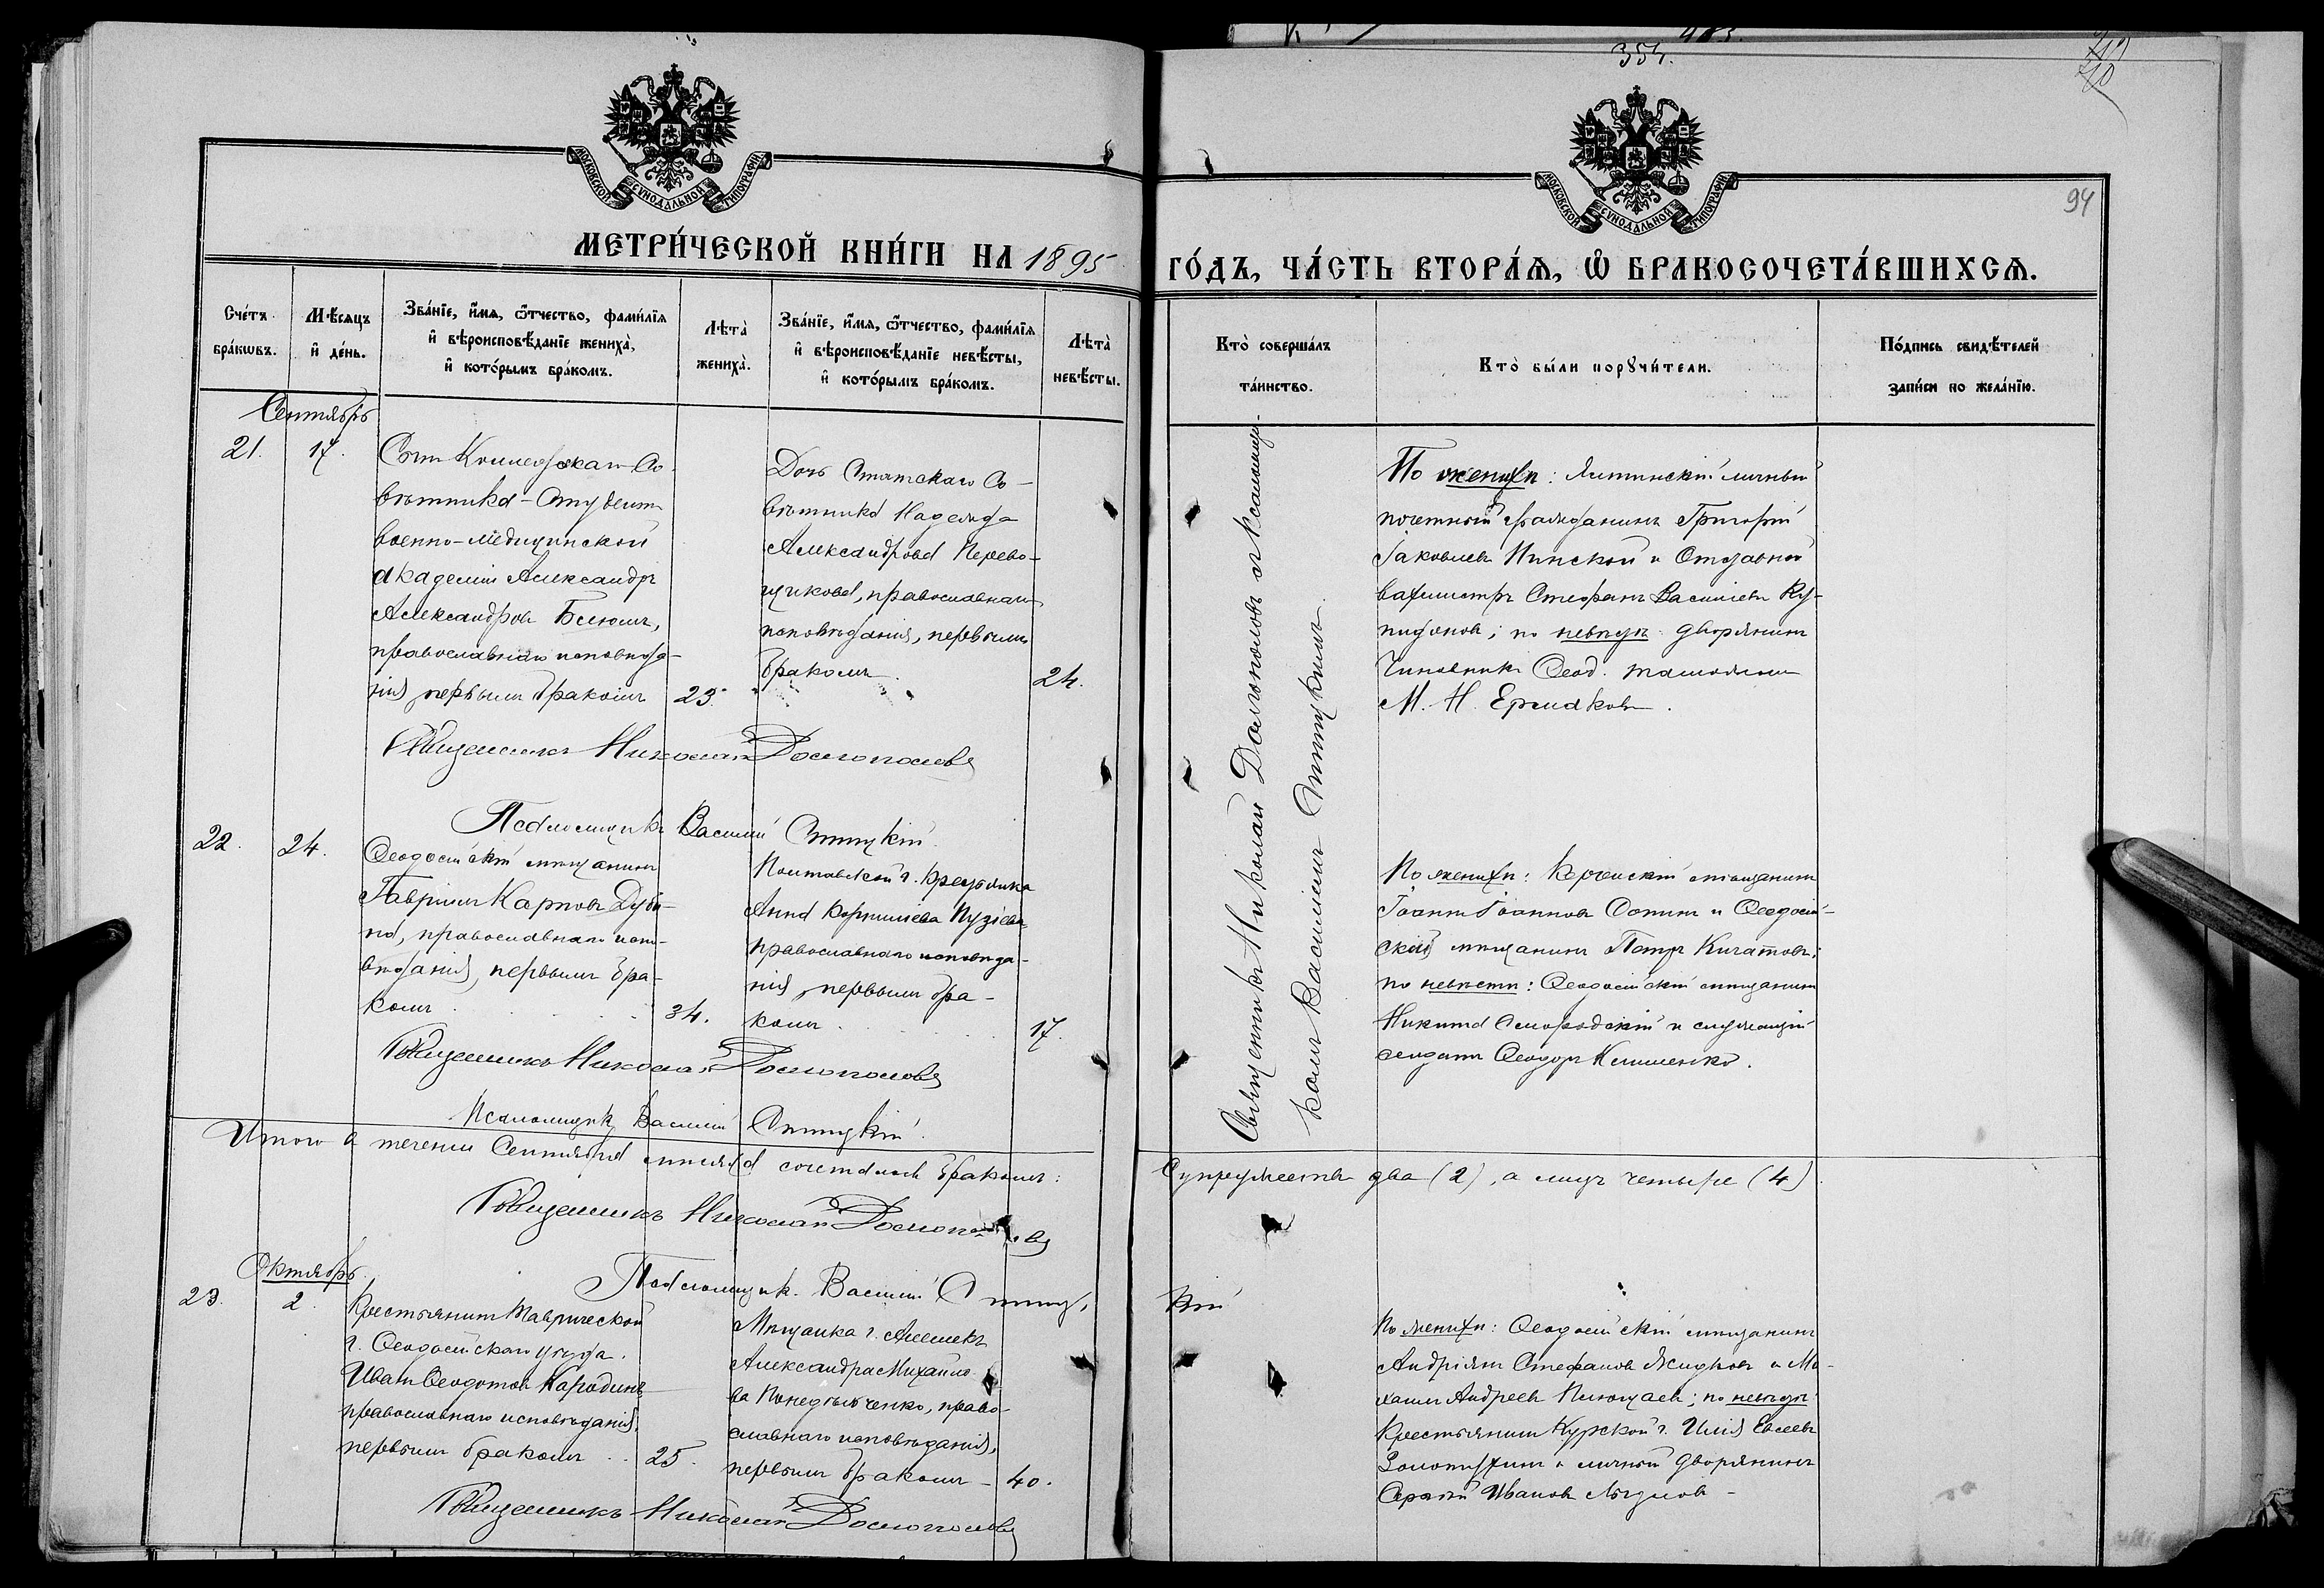 354.
94
МОСКОВСКОЙ СѴНОДАЛЬНОЙ ТИПОГРАФІИ
МОСКОВСКОЙ СѴНОДАЛЬНОЙ ТИПОГРАФІИ
МЕТРИ́ЧЕСКОЙ КНИ́ГИ НА 1895
ГО́ДЪ, ЧА́СТЬ ВТОРА́Ѧ, Ѡ҆ БРАКОСОЧЕТА́ВШИХСѦ.
Сче́тъ бра́кѡвъ.
Мѣ́сѧцъ и҆ де́нь.
Зва́нїе, и҆́мѧ, ѻ҆́тчество, фами́лїѧ
и҆ вѣроисповѣ́данїе жениха̀,
и҆ кото́рымъ бра́комъ.
Лѣта̀ жениха̀.
Зва́нїе, и҆́мѧ, ѻ҆́тчество, фами́лїѧ
и҆ вѣроисповѣ́данїе невѣ́сты,
и҆ кото́рымъ бра́комъ.
Лѣта̀ невѣ́сты.
Кто̀ соверша́лъ та́инство.
Кто̀ бы́ли порꙋчи́тели.
По́дпись свидѣ́телей за́писи по жела́нїю.
Сентябрь
21.
17.
Сынъ Коллежскаго Со-
вѣтника - Студентъ
военно-медицинской
академіи Александръ
Александровъ
православнаго исповѣда-
нія, первымъ бракомъ
23.
Дочь Статскаго Со-
вѣтника Надежда
Александрова Перево-
щикова, православнаго
исповѣданія, первымъ
бракомъ.
24.
Священникъ Николай Долгополовъ съ псаломщи-
комъ Василіемъ
По женихѣ: Ялтинскій личный
почетный гражданинъ Григорій
Іаковлевъ и Отставной
вахмистръ Стефанъ Василіевъ
по невѣстѣ: дворянинъ
Чиновникъ Ѳеод. таможни
М. Н. Ермаковъ.
Священникъ Николай Долгополовъ
Псаломщикъ Василій
22.
24.
Ѳеодосійскій мѣщанинъ
Гавріилъ Карповъ Дуби-
на, православнаго испо-
вѣданія, первымъ бра-
комъ
34.
Полтавской г. Крестьянка
Анна Корниліева
православнаго исповѣда-
нія, первымъ бра-
комъ
17.
По женихѣ: Керченскій мѣщанинъ
Іоаннъ Іоанновъ и Ѳеодосій-
скій мѣщанинъ Петръ
по невѣстѣ: Ѳеодосійскій мѣщанинъ
Никита и служащій
солдатъ Ѳеодоръ Клименко.
Священникъ Николай Долгополовъ
Псаломщикъ Василій
Итого въ теченіи Сентября мѣсяца сочеталось бракомъ:
Супружествъ два (2), а лицъ четыре (4).
Священникъ Николай Долгополовъ
Псаломщикъ Василій
Октябрь
23.
2.
Крестьянинъ Таврической
г. Ѳеодосійскаго уѣзда.
Иванъ Ѳеодотовъ
православнаго исповѣданія,
первымъ бракомъ
25.
Мѣщанка г. Алешекъ
Александра Михайло-
ва, право-
славнаго исповѣданія,
первымъ бракомъ
40.
По женихѣ: Ѳеодосійскій мѣщанинъ
Андріянъ Стефановъ и Ми-
хаилъ Андреевъ; по невѣстѣ:
Крестьянинъ Курской г. Илія Евсеевъ
и личный дворянинъ
Сергѣй Ивановъ
Священникъ Николай Долгополовъ